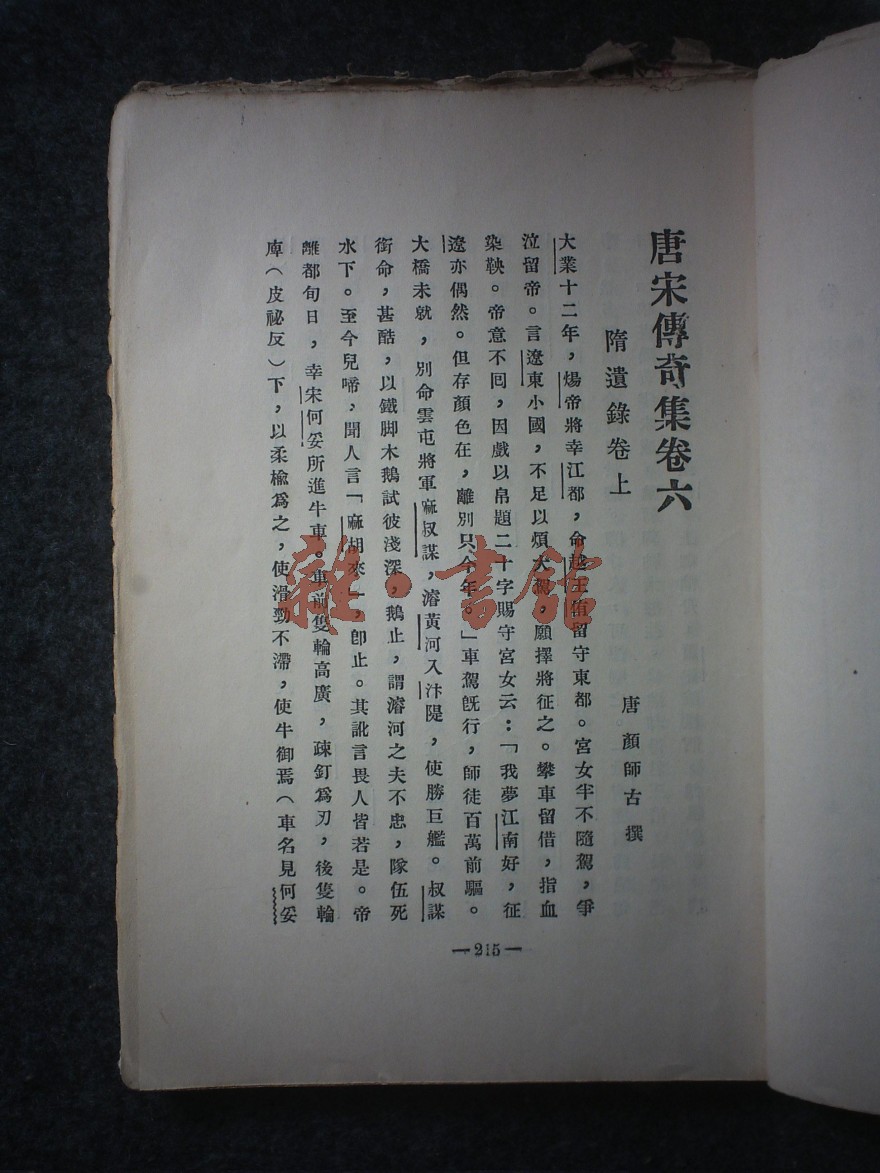 唐宋傳奇集卷六
隋遺錄卷上
唐 顏師古 撰
大業十二年，煬帝將幸江都，命越王侑留守東都。宮女半不隨駕，爭
泣留帝。言遼東小國，不足以煩大駕，願擇將征之。攀車留借，指血
染鞅。帝意不回，因戲以帛題二十字賜守宮女云：「我夢江南好，征
遼亦偶然。但存顏色在，離別只今年。」車駕旣行，師徒百萬前驅。
大橋未就，別命雲屯將軍麻叔謀，濬黃河入汴隄，使勝巨艦。叔謀
銜命，甚酷，以鐵脚木鵝試彼淺深，鵝止，謂濬河之夫不忠，隊伍死
水下。至今兒啼，聞人言「麻胡來」，卽止。其訛言畏人皆若是。帝
離都旬日，幸宋何妥所進牛車。車前隻輪高廣，疎釘爲刃，後隻輪
庳（皮祕反）下，以柔楡爲之，使滑勁不滯，使牛御焉（車名見何妥
—215—
雜·書館